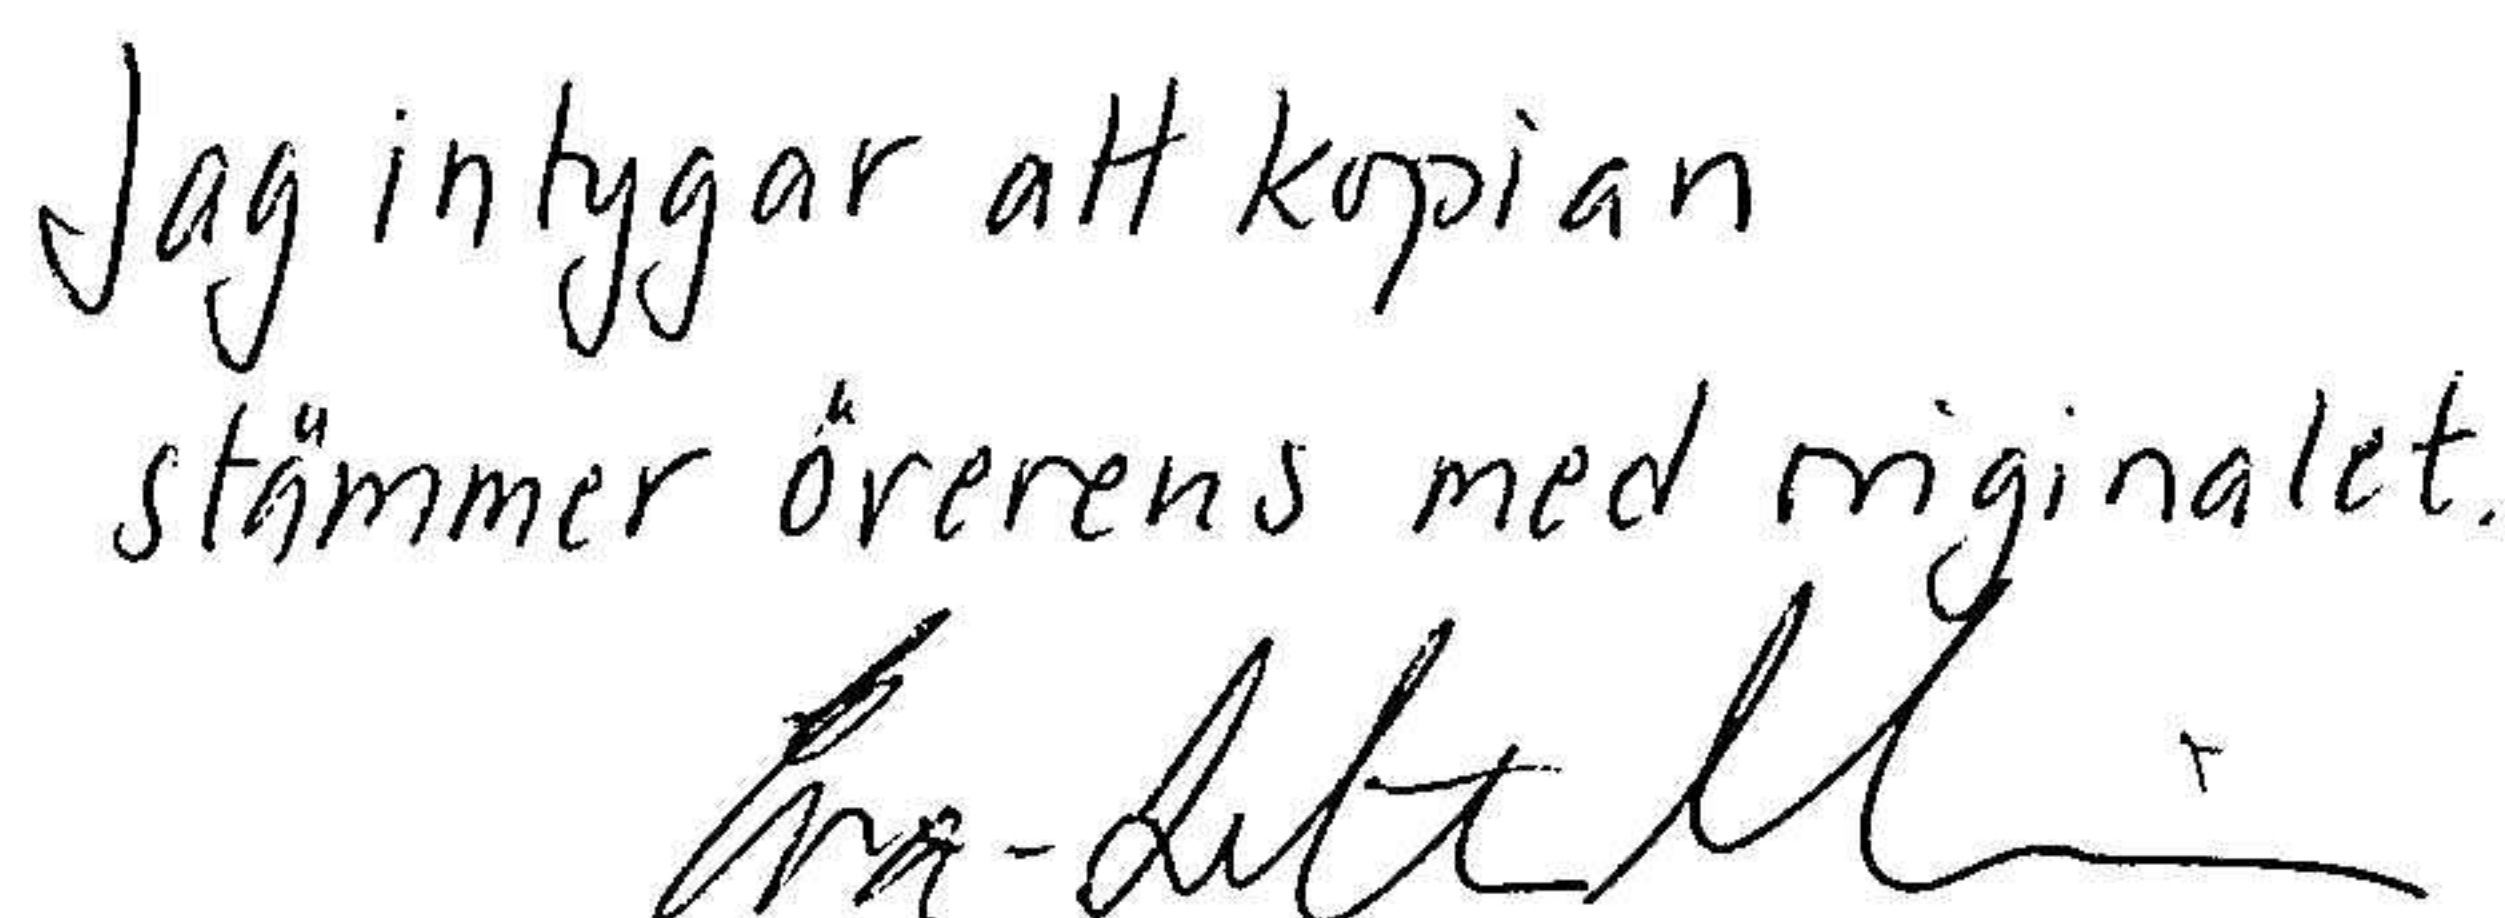 Jag intygar att kopian
stämmer överens med originalet.